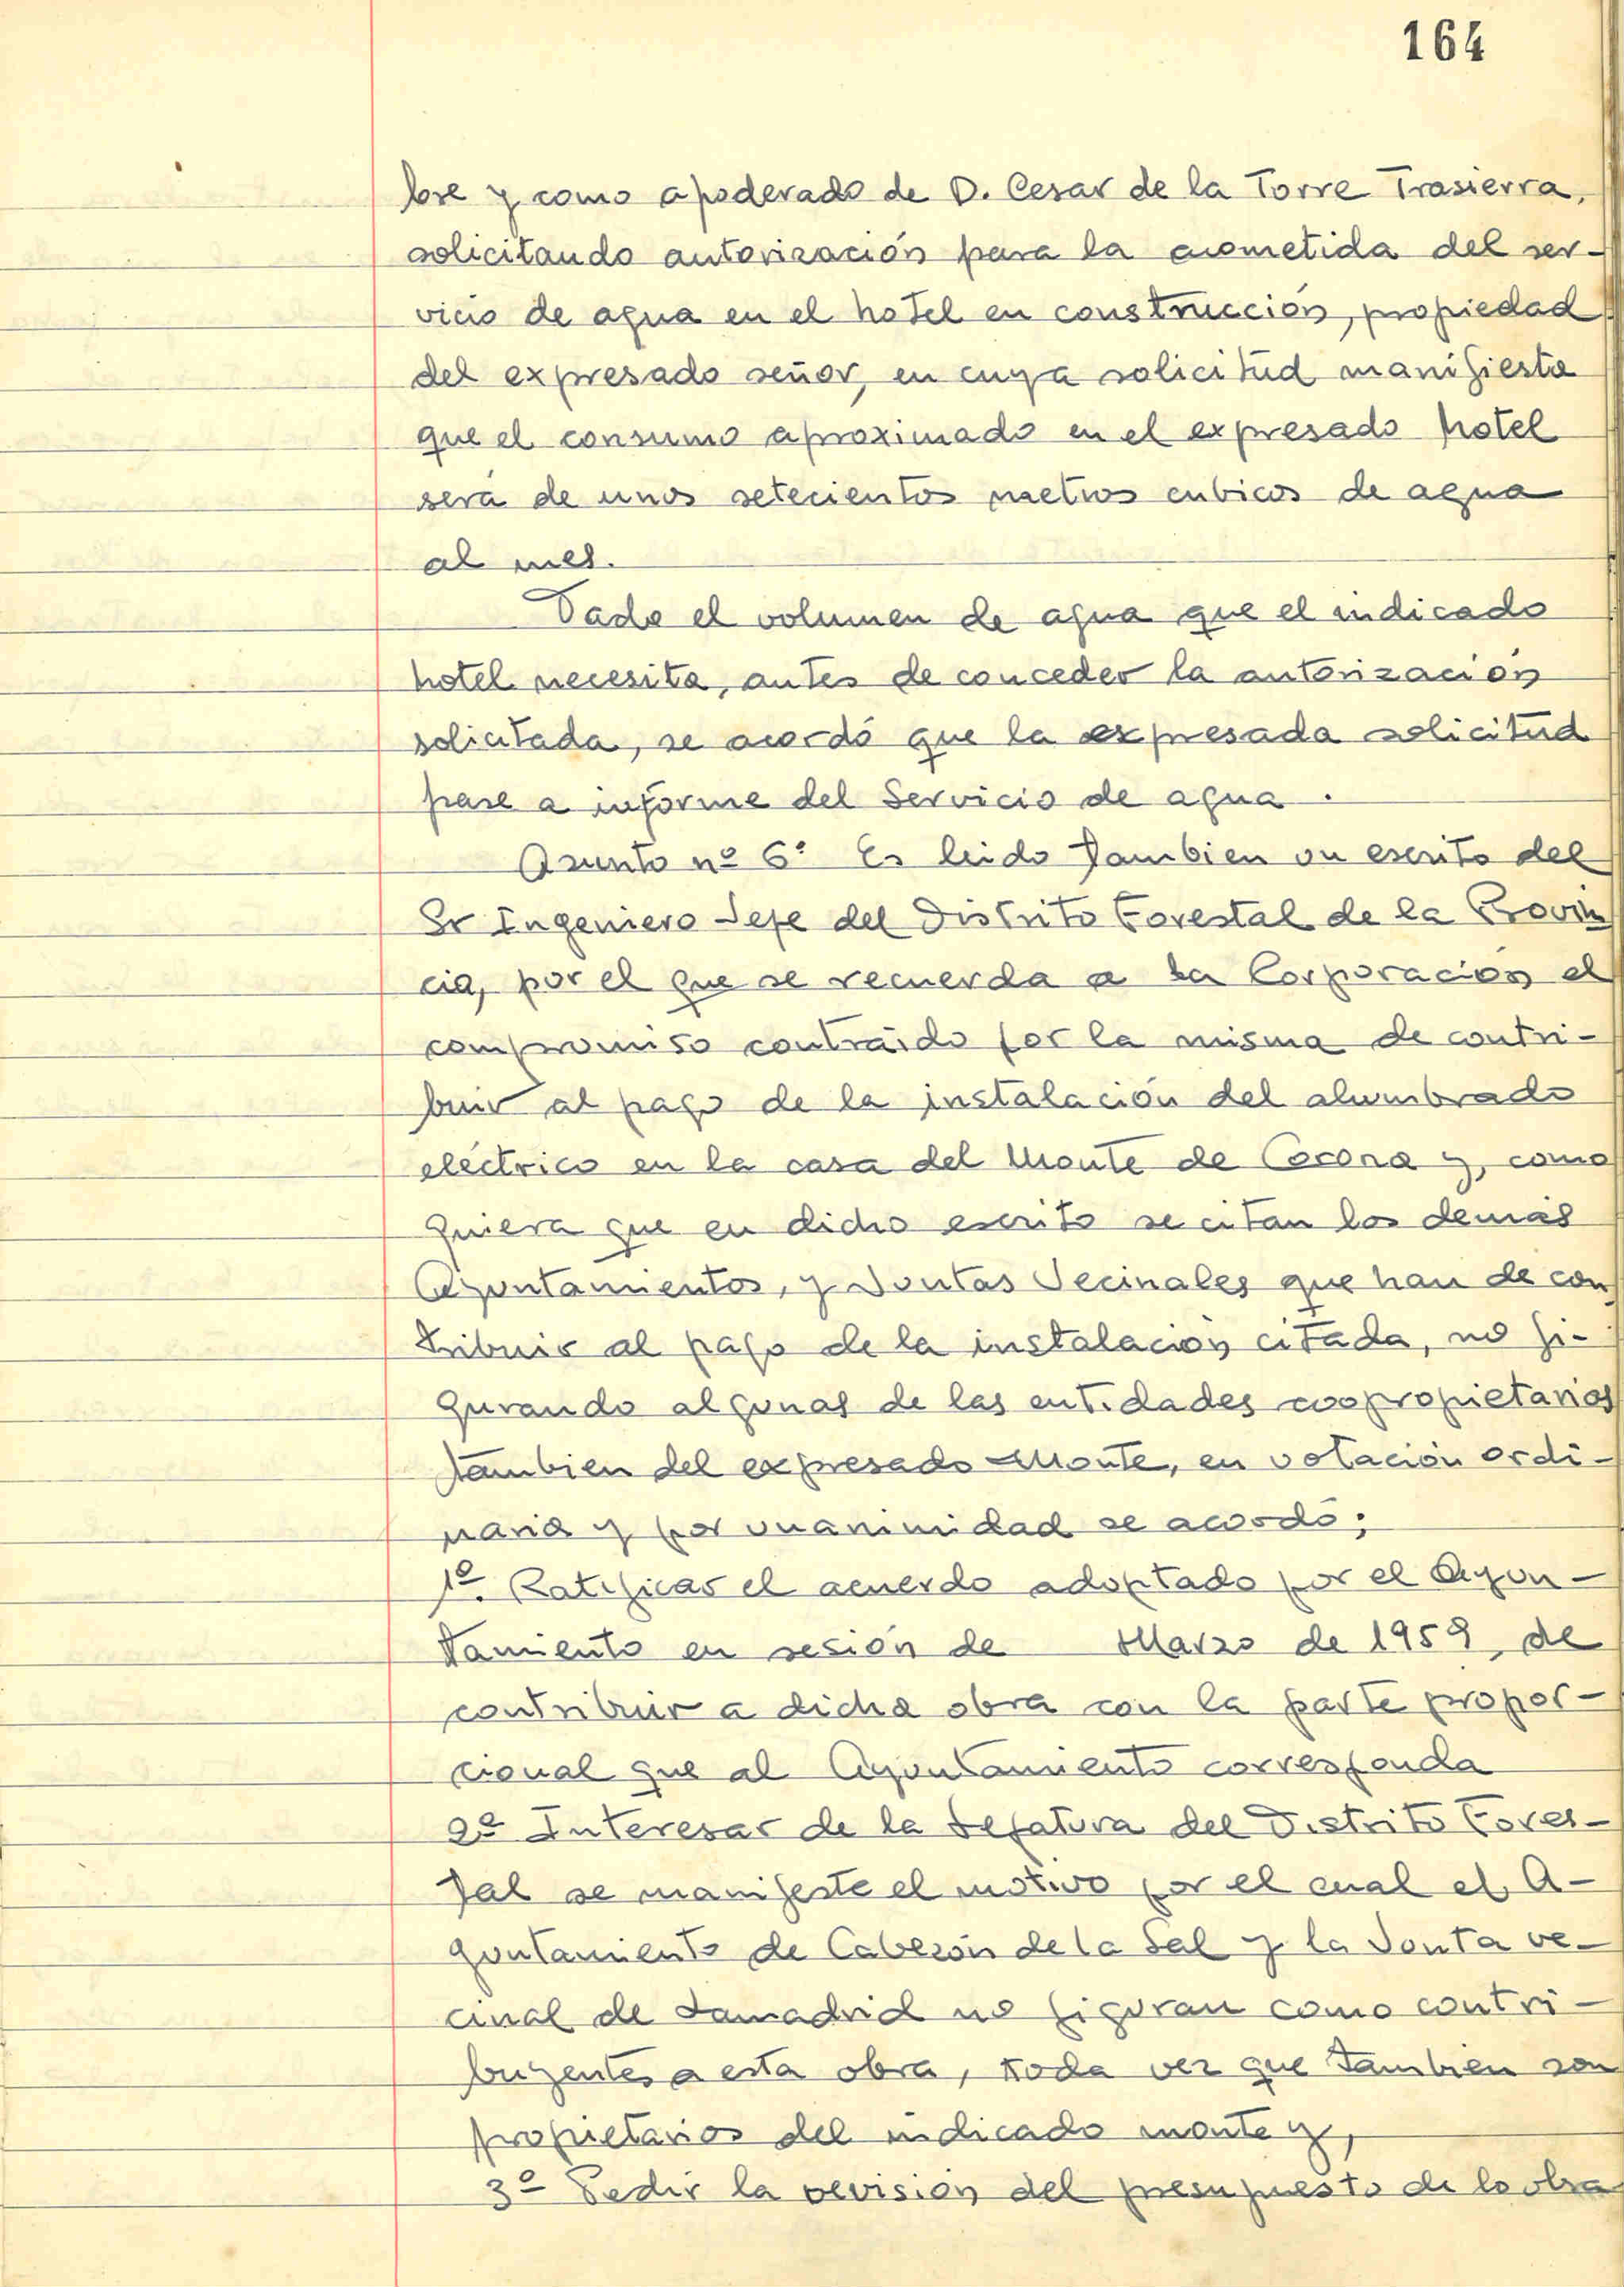 164
lose y como apoderado de D. Cesar de la Torre Trasierra,
solicitando autorización para la acometida del ser-
vicio de agua en el hotel en construcción, propiedad
del expresado señor, en cuya solicitud manifiesta
que el consumo aproximado en el expresado hotel
será de unos setecientos metros cubicos de agua
al mes.
Dado el volumen de agua que el indicado
hotel necesita, antes de conceder la autorización
solicitada, se acordó que la expresada solicitud
pase a informe del Servicio de agua.
Asunto nº 6º Es leido tambien un escrito del
Sr Ingeniero Jefe del Distrito Forestal de la Provin
cia, por el que se recuerda a la Corporación el
compromiso contraido por la misma de contri-
buir al pago de la instalación del alumbrado
eléctrico en la casa del Monte de Corona y, como
quiera que en dicho escrito se citan los demás
Ayuntamientos, y Juntas Vecinales que han de con
tribuir al pago de la instalación citada, no fi-
gurando algunas de las entidades coopropietarios
tambien del expresado Monte, en votación ordi-
naria y por unanimidad se acordó;
1º. Ratificar el acuerdo adoptado por el Ayun-
tamiento en sesión de Marzo de 1959, de
contribuir a dicha obra con la parte propor-
cional que al Ayuntamiento corresponda
2º Interesar de la Jefatura del Distrito Fores-
tal se manifeste el motivo por el cual el A-
yuntamiento de Cabezón de la Sal y la Junta ve-
cinal de Lamadrid no figuran como contri-
buyentes a esta obra, toda vez que tambien son
propietarios del indicado monte y,
3º Pedir la revisión del presupuesto de la obra